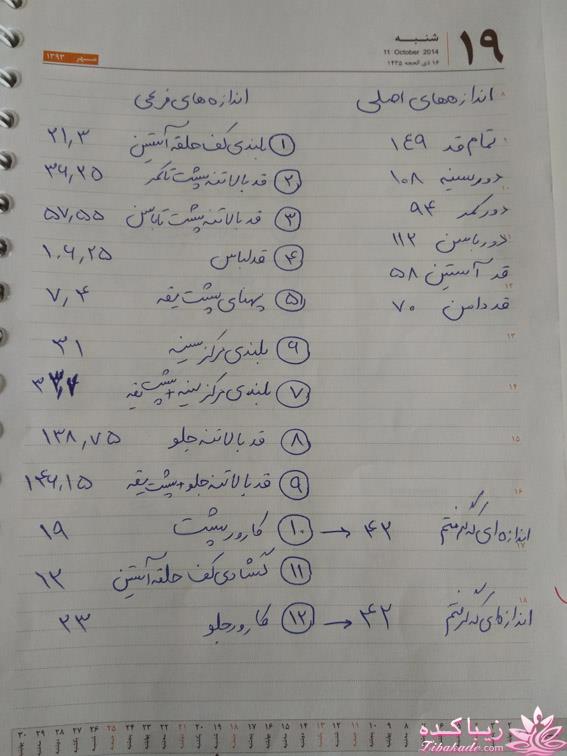 ۱۹ شنبه
11 October 2014
۱۶ ذی الحجه ۱۴۳۵
مهر ۱۳۹۳
اندازه‌های اصلی
تمام قد ۱۴۹
دور سینه ۱۰۸
دور کمر ۹۴
دور باسن ۱۱۲
قد آستین ۵۸
قد دامن ۷۰
اندازه‌های فرعی
۱ بلندی کف حلقه آستین ۲۱,۳
۲ قد بالاتنه پشت تا کمر ۳۶,۲۵
۳ قد بالاتنه پشت تا باسن ۵۷,۵۵
۴ قد لباس ۱۰۶,۲۵
۵ پهنای پشت یقه ۷,۴
۶ بلندی مرکز سینه ۳۱
۷ بلندی مرکز سینه + پشت یقه
۸ قد بالاتنه جلو ۱۳۸,۷۵
۹ قد بالاتنه جلو + پشت یقه ۱۴۶,۱۵
اندازه ای که گرفتم ۴۲ → ۱۰ کارور پشت ۱۹
۱۱ گشادی کف حلقه آستین ۱۲
اندازه‌ای که گرفتم ۴۲ → ۱۲ کارور جلو ۲۳
زیباکده
Zibakade.com